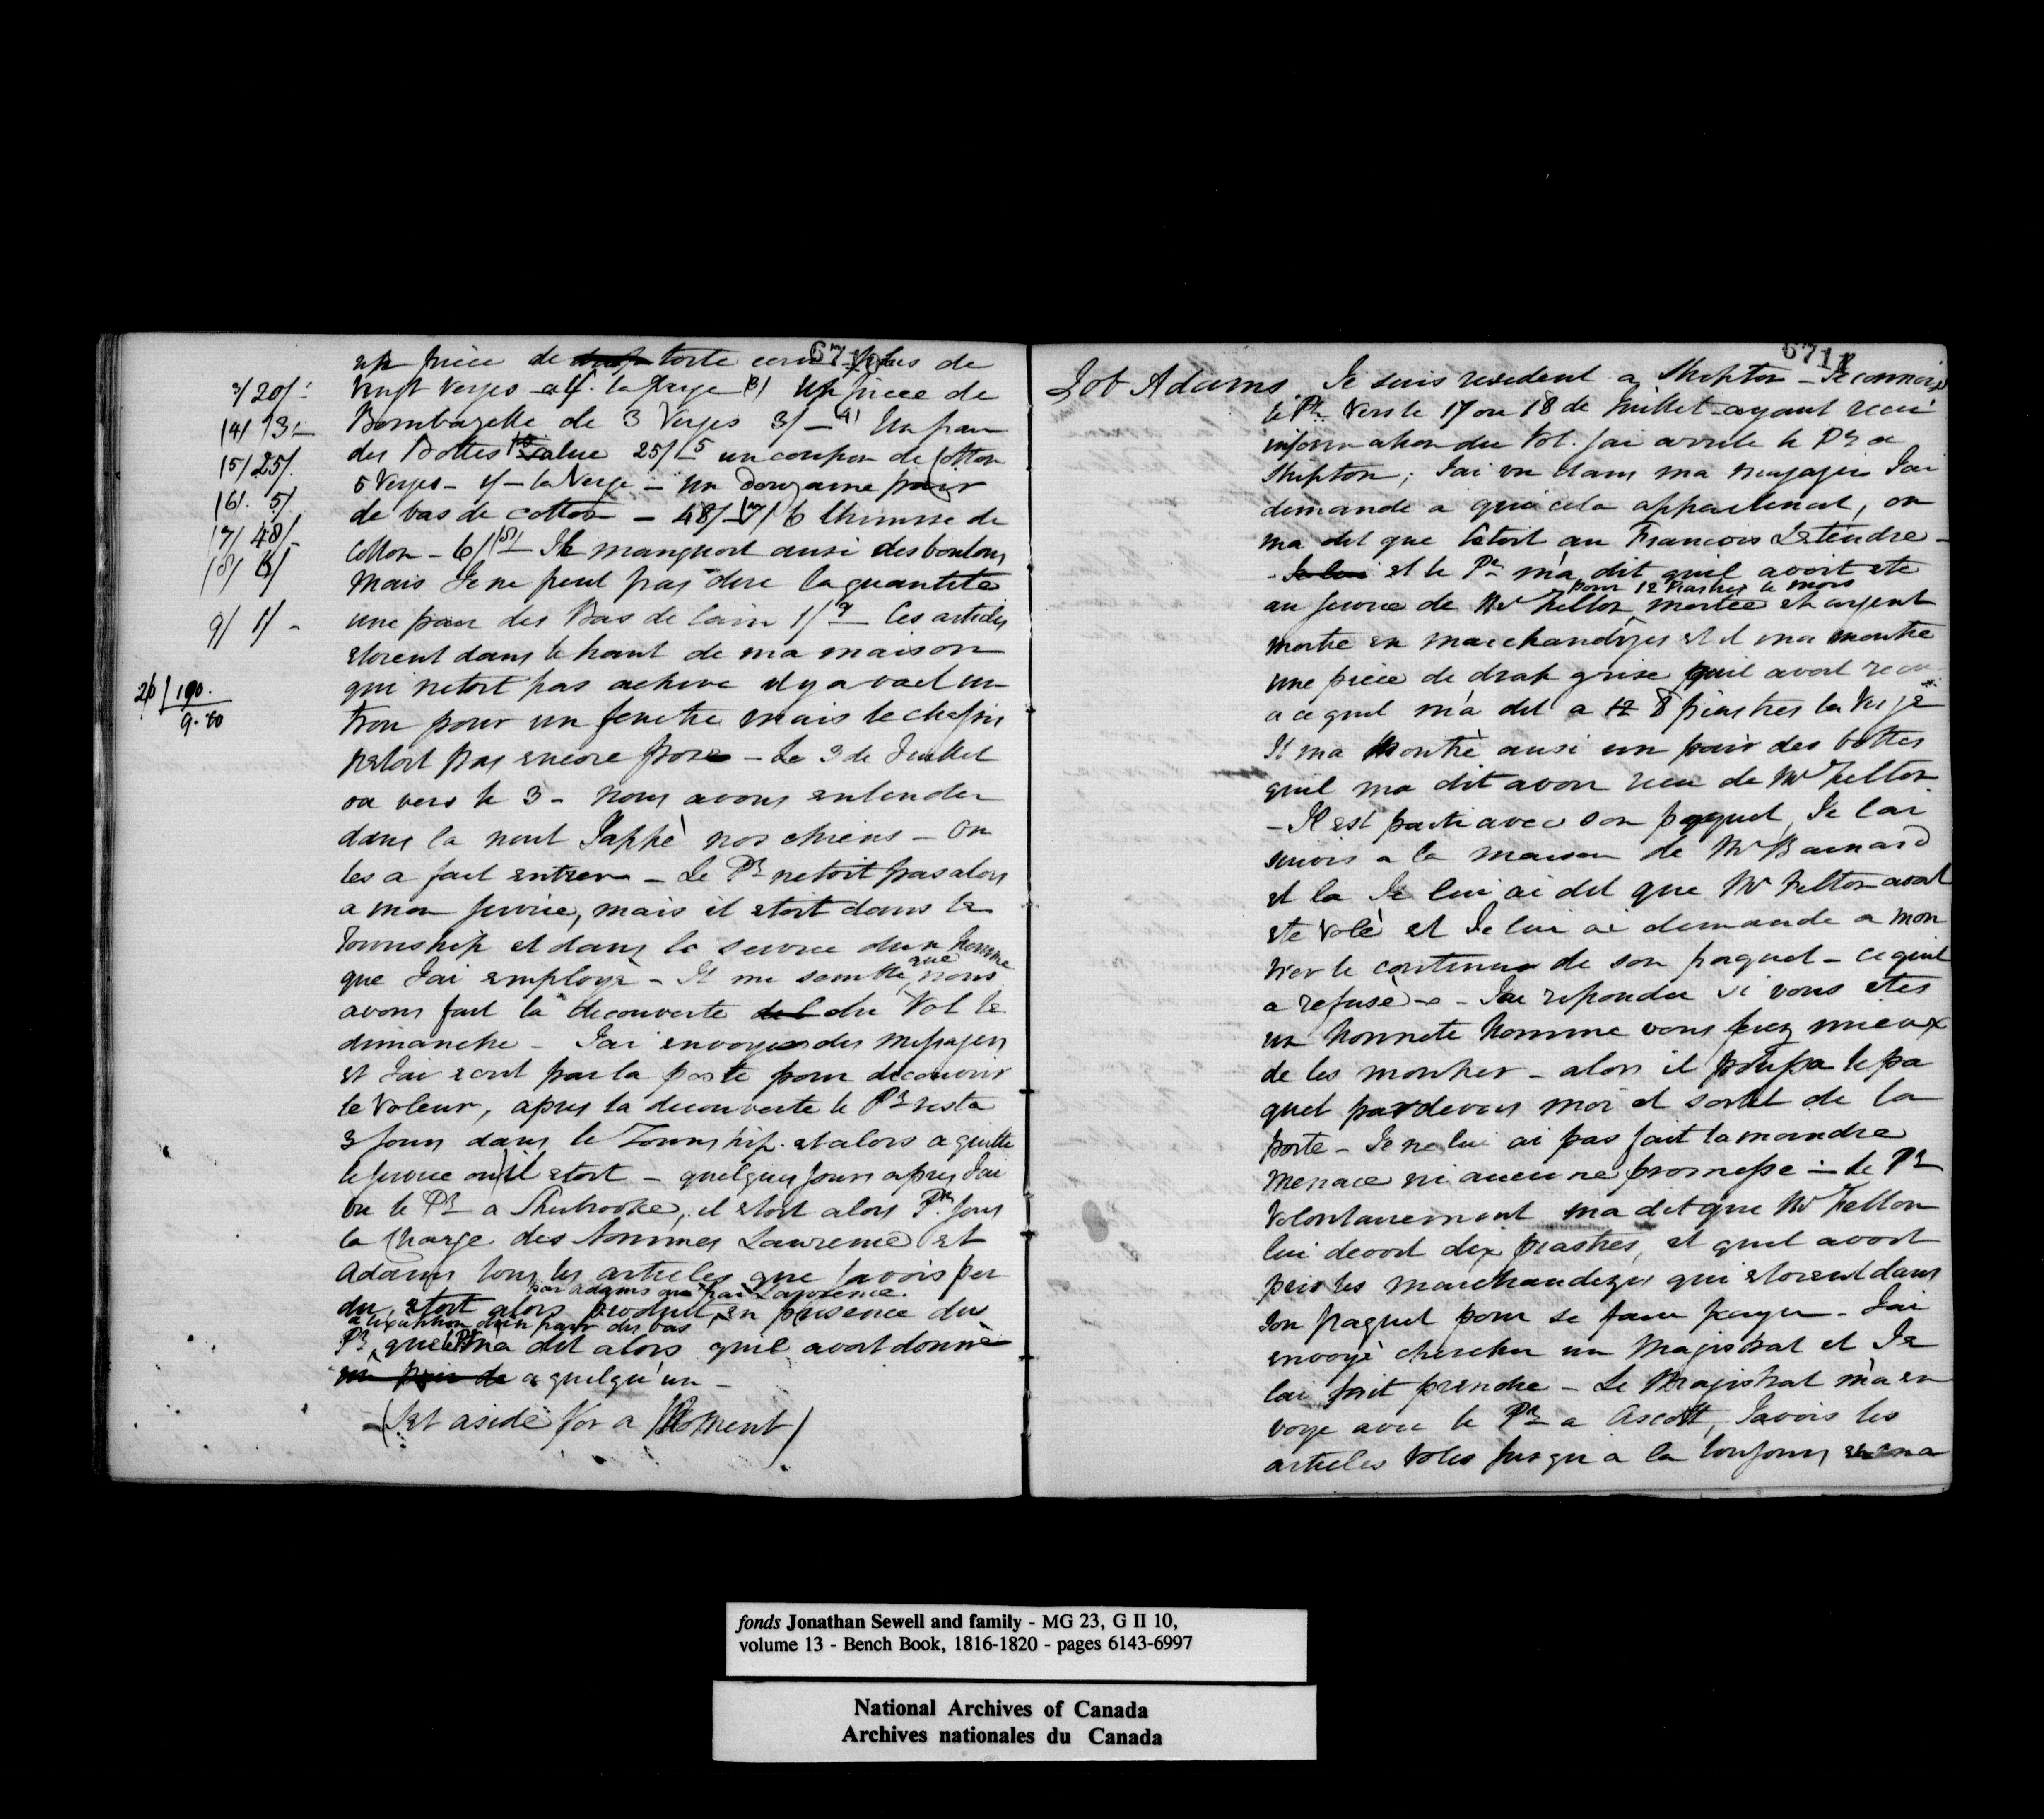 6710
un pièce de toile environ plus de
3/ 20/- vingt verges a 1/. la verge (3) Un pièce de
(4) 13/- Bombazette de 3 Verges 3/ - (4) Un pair
(5) 25/. des Bottes value 25/ - 5 un coupon de Cotton
5 Verges - 1/ - la Verge - un Douzaine pair
(6) 5/.
(7) 48/- de bas de cotton - 48/ - (7) 6 Chemise de
(8) 6/ Cotton - 6/ (8) Il manquoit ausi des boutons
Mais Je ne peut pas dire la quantité
9/ 1/ - une pair des Bas de lain 1/ 9 Les articles
etoient dans le haut de ma maison
qui netoit pas acheve il y avait un
trou pour un fenetre mais le chassis
netoit pas encore pose - Le 3 de Juillet
ou vers le 3 - nous avons entendu
dans la nuit Jappè nos chiens - On
les a fait entrer - Le Pr netoit pas alors
a mon service, mais il etoit dans le
Township et dans le service dun homme
que J'ai employè - Il me semble que nous
avons fait la decouverte du Vol le
dimanche - J'ai envoyer des Messagers
et J'ai ecrit par la poste pour decouvrir
le Voleur, apres la decouverte le Pr resta
3 Jours dans le Township et alors a quitte
le service ou il etoit - quelques Jours apres J'ai
vu le Pr a Sherbrooke, il etoit alors Pr. sous
la Charge des Nommes Lawrence et
Adams tous les articles que Javois per
par Adams ou par Lawrence.
du, etoit alors produit, en presence du
a lexception d'un pair des bas
Pr, que le Pr m'a dit alors quil avoit donnè
a quelqu'un -
(Set aside for a Moment)
6711
Job Adams Je suis resident a Shipton - Je connois
le Pr. Vers le 17 ou 18 de Juillet ayant recu
information du Vol. J'ai arrete le Pr a
Shipton; J'ai vu dans ma J'ai
demande a qui cela appartenoit, on
ma dit que C'etoit au Francois Letendre -
et le Pr m'a dit quil avoit ete
pour 12 Piastres le mois
au service de Mr Felton moitee et argent
moitie en marchandizes et il ma montre
une pièce de drap grise quil avoit recu
a ce quil m'a dit a 8 piastres la Verge
Il ma Montrè ausi un pair des bottes
quil ma dit avoir recu de Mr Felton
- Il est parti avec son paquet, Je lai
suivis a la maison de Mr Barnard
et la Je lui ai dit que Mr Felton avoit
ete volè et Je lui ai demande a mon
trer le contenu de son paquet - ce quil
a refusè - J'ai repondu si vous etes
un honnete homme vous ferez mieux
de les montrer - alors il le pa
quet pardevant moi et sortit de la
porte - Je ne lui ai pas fait la moindre
menace ni aucune promesse - Le Pr
Volontairement ma dit que Mr Felton
lui devoit dix piastres, et quil avoit
pris les marchandizes qui etoient dans
son paquet pour se faire payer - J'ai
envoyè chercher un Magistrat et Je
lai fait prendre - Le Magistrat m'a en
voye avec le Pr a Ascott, Javois les
articles voles Jusqu'a la toujours en ma
20/ 190.
9.10
fonds Jonathan Sewell and family - MG 23, G II 10,
volume 13 - Bench Book, 1816-1820 - pages 6143-6997
National Archives of Canada
Archives nationales du Canada